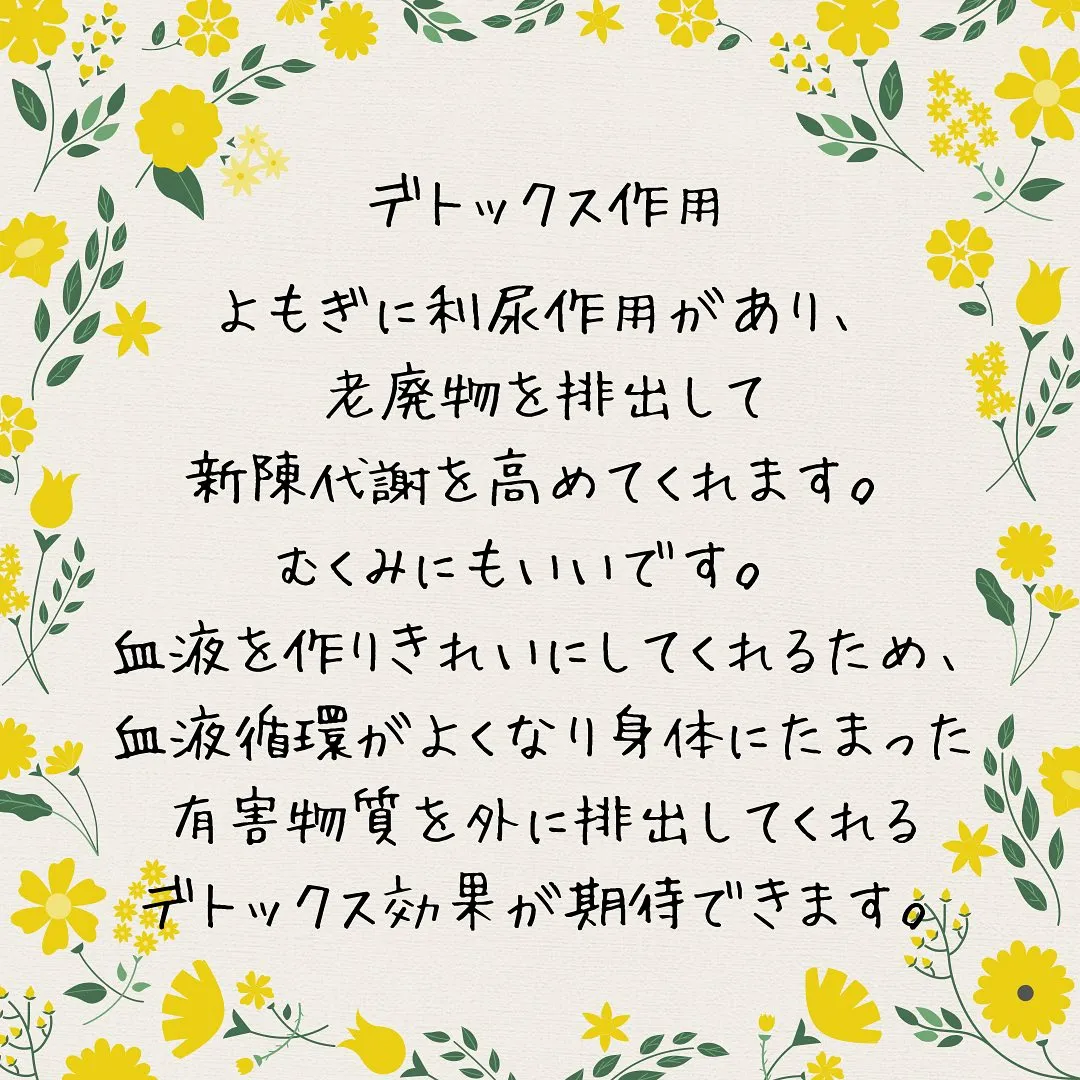 デトックス作用
よもぎに利尿作用があり、
老廃物を排出して
新陳代謝を高めてくれます。
むくみにもいいです。
血液を作りきれいにしてくれるため、
血液循環がよくなり身体にたまった
有害物質を外に排出してくれる
デトックス効果が期待できます。